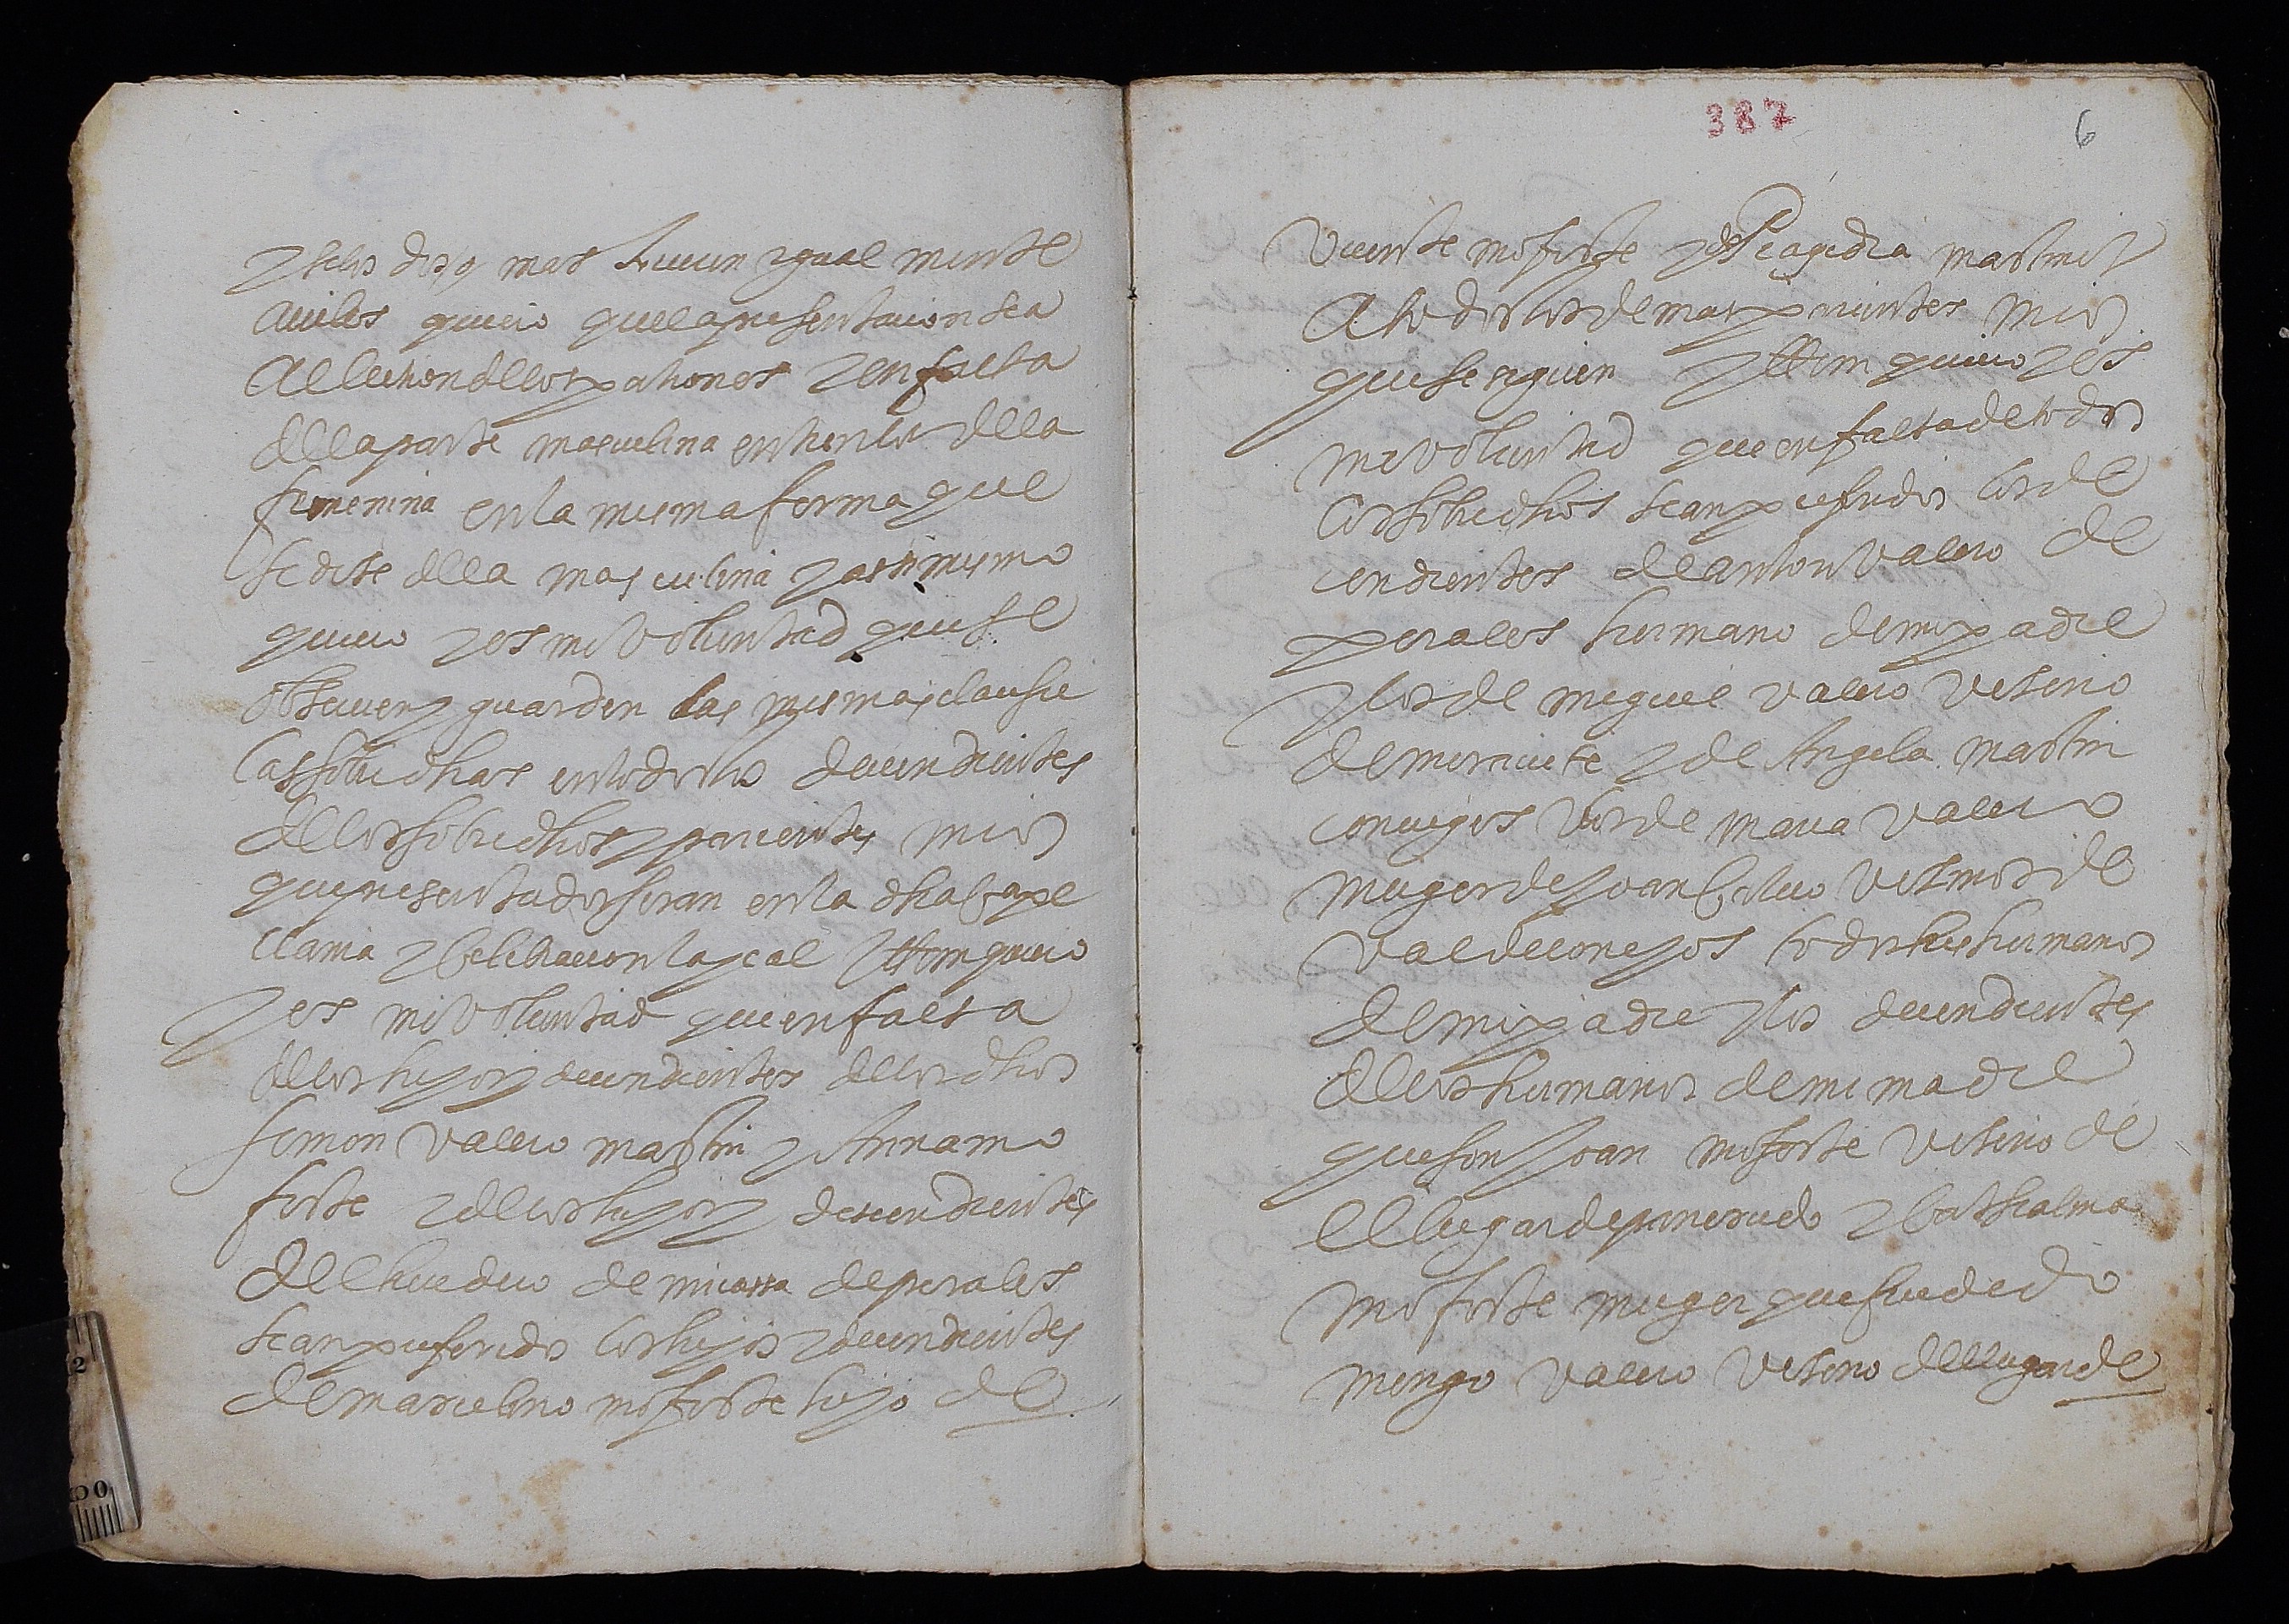 y si los dos o mas fueren ygual mente
auiles quiero que la presentacion sea
a election de los patrones y en falta
de la parte masculina entren los de la
femenina en la misma forma que
se dise de la masculina y assimismo
quiero y es mi voluntad que se
obseruen y guarden las mismas clausu
las sobredichas en todos los decendientes
de los sobredhos y parientes mios
que presentados seran en la dha cape
llania y celebracion la qual Ittem quiero
y es mi voluntad que en falta
de los hijos y decendientes de los dhos
Simon Valero Martin y Anna mo
forte y de los hijos y descendientes
del heredero de mi cassa de perales
sean preferidos los hijos y decendientes
de marcelino moforte hijo de
387
6
Vicente moforte y de Pe agedra martinez
a todos los demas parientes mios
que se siguen Ittem quiero y es
mi voluntad que en falta de todos
los sobredhos sean preferidos los de
cendientes de anton Valero de
perales hermano de mi padre
y los de miguel valero vezino
de mezquita y de Angela martin
conuges y los de maria valero
muger de Joan Caluo vezinos de
valdeconejos todos tres hermanos
de mi padre y los decendientes
de los hermanos de mi madre
que son Joan moforte vezino de
el lugar de pancrudo y Cathalina
moforte muger que fue de do
mingo valero vezino del lugar de